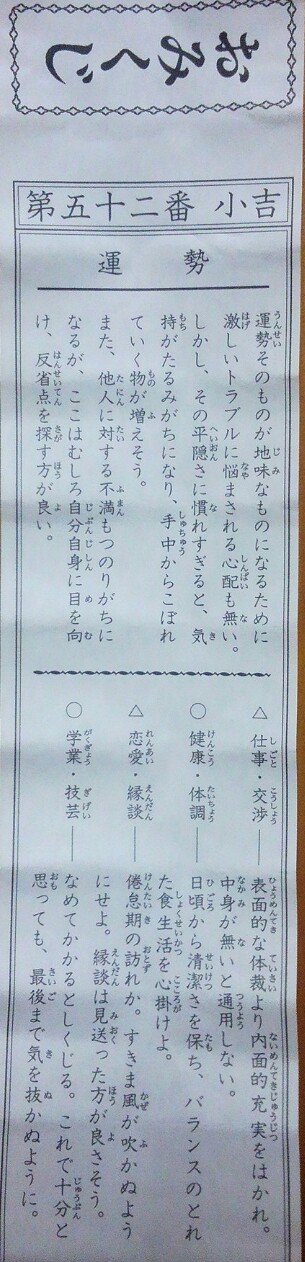 おみくじ
第五十二番 小吉
運勢
運勢そのものが地味なものになるために
激しいトラブルに悩まされる心配も無い。
しかし、その平隠さに慣れすぎると、気
持がたるみがちになり、手中からこぼれ
ていく物が増えそう。
また、他人に対する不満もつのりがちに
なるが、ここはむしろ自分自身に目を向
け、反省点を探す方が良い。
△ 仕事・交渉── 表面的な体裁より内面的充実をはかれ。
中身が無いと通用しない。
○ 健康・体調── 日頃から清潔さを保ち、バランスのとれ
た食生活を心掛けよ。
△ 恋愛・縁談── 倦怠期の訪れか。すきま風が吹かぬよう
にせよ。縁談は見送った方が良さそう。
○ 学業・技芸── なめてかかるとしくじる。これで十分と
思っても、最後まで気を抜かぬように。